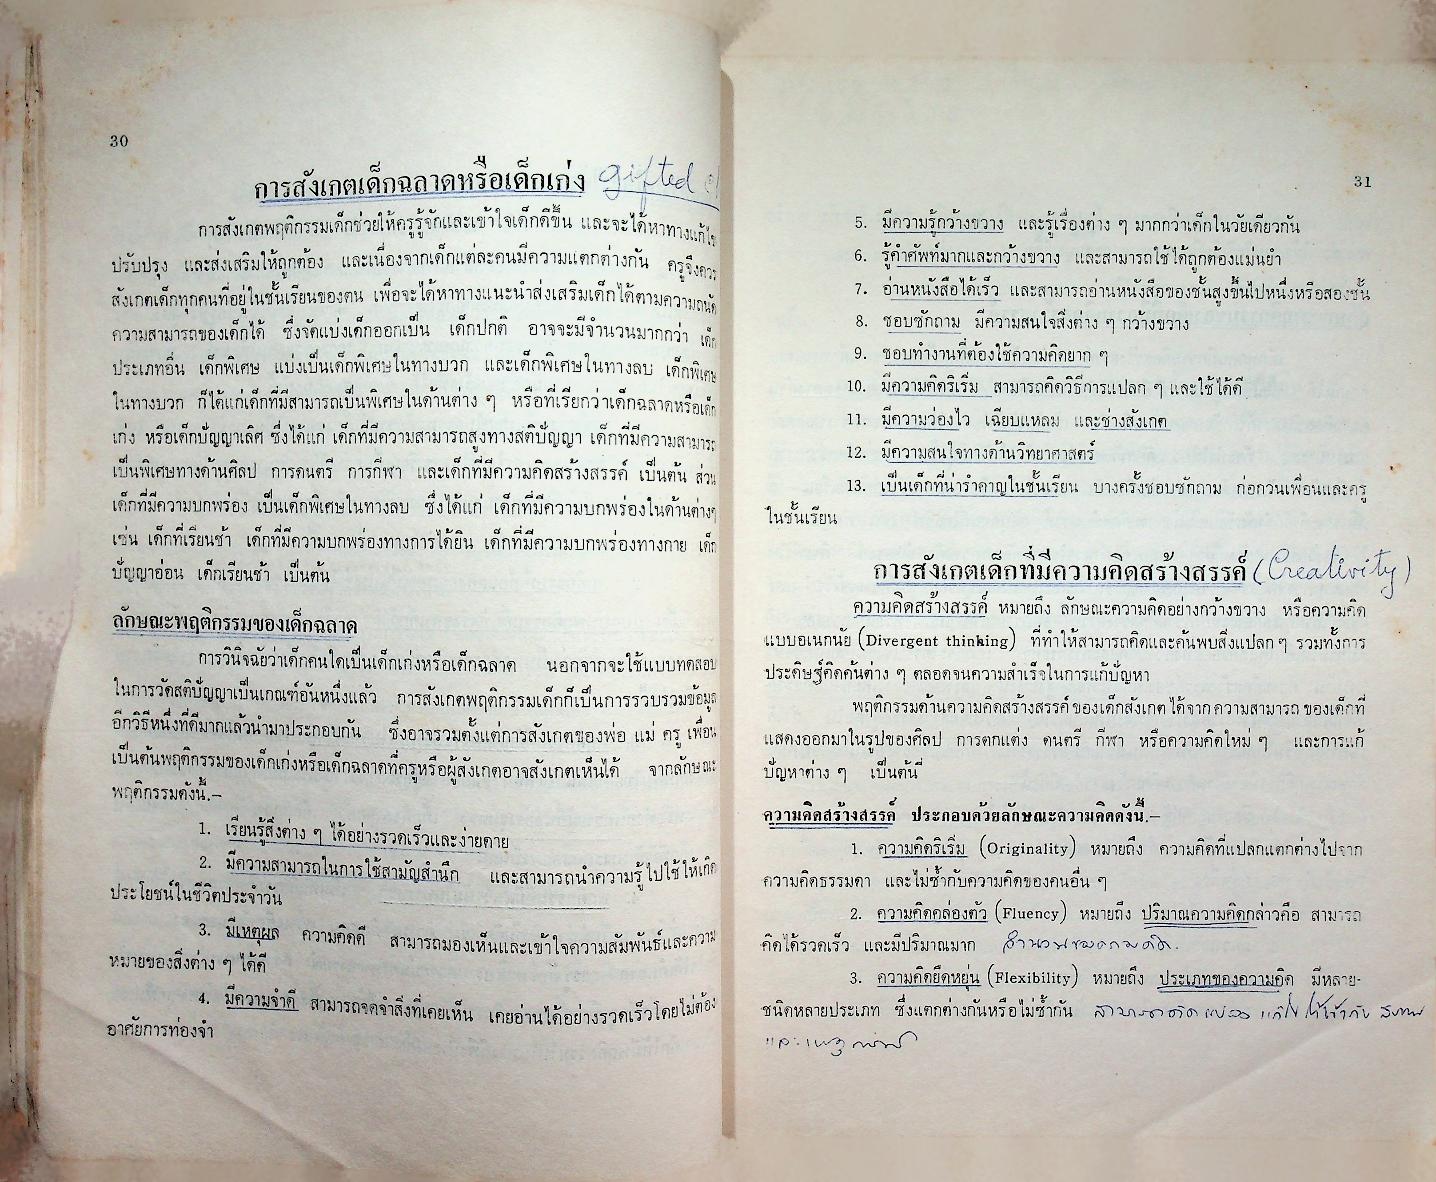 30
การสังเกตเด็กฉลาดหรือเด็กเก่ง gifted
การสังเกตพฤติกรรมเด็กช่วยให้ครูรู้จักและเข้าใจเด็กดีขึ้น และจะได้หาทางแก้ไข
ปรับปรุง และส่งเสริมให้ถูกต้อง และเนื่องจากเด็กแต่ละคนมีความแตกต่างกัน ครูจึงควร
สังเกตเด็กทุกคนที่อยู่ในชั้นเรียนของตน เพื่อจะได้หาทางแนะนำส่งเสริมเด็กได้ตามความถนัด
ความสามารถของเด็กได้ ซึ่งจัดแบ่งเด็กออกเป็น เด็กปกติ อาจจะมีจำนวนมากกว่า เด็ก
ประเภทอื่น เด็กพิเศษ แบ่งเป็นเด็กพิเศษในทางบวก และเด็กพิเศษในทางลบ เด็กพิเศษ
ในทางบวก ก็ได้แก่เด็กที่มีสามารถเป็นพิเศษในด้านต่าง ๆ หรือที่เรียกว่าเด็กฉลาดหรือเด็ก
เก่ง หรือเด็กปัญญาเลิศ ซึ่งได้แก่ เด็กที่มีความสามารถสูงทางสติปัญญา เด็กที่มีความสามารถ
เป็นพิเศษทางด้านศิลป การดนตรี การกีฬา และเด็กที่มีความคิดสร้างสรรค์ เป็นต้น ส่วน
เด็กที่มีความบกพร่อง เป็นเด็กพิเศษในทางลบ ซึ่งได้แก่ เด็กที่มีความบกพร่องในด้านต่างๆ
เช่น เด็กที่เรียนช้า เด็กที่มีความบกพร่องทางการได้ยิน เด็กที่มีความบกพร่องทางกาย เด็ก
ปัญญาอ่อน เด็กเรียนช้า เป็นต้น
ลักษณะพฤติกรรมของเด็กฉลาด
การวินิจฉัยว่าเด็กคนใดเป็นเด็กเก่งหรือเด็กฉลาด นอกจากจะใช้แบบทดสอบ
ในการวัดสติปัญญาเป็นเกณฑ์อันหนึ่งแล้ว การสังเกตพฤติกรรมเด็กก็เป็นการรวบรวมข้อมูล
อีกวิธีหนึ่งที่ดีมากแล้วนำมาประกอบกัน ซึ่งอาจรวมตั้งแต่การสังเกตของพ่อ แม่ ครู เพื่อน
เป็นต้นพฤติกรรมของเด็กเก่งหรือเด็กฉลาดที่ครูหรือผู้สังเกตอาจสังเกตเห็นได้ จากลักษณะ
พฤติกรรมดังนี้.–
1. เรียนรู้สิ่งต่าง ๆ ได้อย่างรวดเร็วและง่ายดาย
2. มีความสามารถในการใช้สามัญสำนึก และสามารถนำความรู้ไปใช้ให้เกิด
ประโยชน์ในชีวิตประจำวัน
3. มีเหตุผล ความคิดดี สามารถมองเห็นและเข้าใจความสัมพันธ์และความ
หมายของสิ่งต่าง ๆ ได้ดี
4. มีความจำดี สามารถจดจำสิ่งที่เคยเห็น เคยอ่านได้อย่างรวดเร็วโดยไม่ต้อง
อาศัยการท่องจำ
31
5. มีความรู้กว้างขวาง และรู้เรื่องต่าง ๆ มากกว่าเด็กในวัยเดียวกัน
6. รู้คำศัพท์มากและกว้างขวาง และสามารถใช้ได้ถูกต้องแม่นยำ
7. อ่านหนังสือได้เร็ว และสามารถอ่านหนังสือของชั้นสูงขึ้นไปหนึ่งหรือสองชั้น
8. ชอบซักถาม มีความสนใจสิ่งต่าง ๆ กว้างขวาง
9. ชอบทำงานที่ต้องใช้ความคิดยาก ๆ
10. มีความคิดริเริ่ม สามารถคิดวิธีการแปลก ๆ และใช้ได้ดี
11. มีความว่องไว เฉียบแหลม และช่างสังเกต
12. มีความสนใจทางด้านวิทยาศาสตร์
13. เป็นเด็กที่น่ารำคาญในชั้นเรียน บางครั้งชอบซักถาม ก่อกวนเพื่อนและครู
ในชั้นเรียน
การสังเกตเด็กที่มีความคิดสร้างสรรค์ (Creativity)
ความคิดสร้างสรรค์ หมายถึง ลักษณะความคิดอย่างกว้างขวาง หรือความคิด
แบบอเนกนัย (Divergent thinking) ที่ทำให้สามารถคิดและค้นพบสิ่งแปลกๆ รวมทั้งการ
ประดิษฐ์คิดค้นต่าง ๆ ตลอดจนความสำเร็จในการแก้ปัญหา
พฤติกรรมด้านความคิดสร้างสรรค์ของเด็กสังเกตได้จากความสามารถของเด็กที่
แสดงออกมาในรูปของศิลป การตกแต่ง ดนตรี กีฬา หรือความคิดใหม่ ๆ และการแก้
ปัญหาต่าง ๆ เป็นต้นนี่
ความคิดสร้างสรรค์ ประกอบด้วยลักษณะความคิดดังนี้.–
1. ความคิดริเริ่ม (Originality) หมายถึง ความคิดที่แปลกแตกต่างไปจาก
ความคิดธรรมดา และไม่ซ้ำกับความคิดของคนอื่น ๆ
2. ความคิดคล่องตัว (Fluency) หมายถึง ปริมาณความคิดกล่าวคือ สามารถ
คิดได้รวดเร็ว และมีปริมาณมาก
3. ความคิดยืดหยุ่น (Flexibility) หมายถึง ประเภทของความคิด มีหลาย-
ชนิดหลายประเภท ซึ่งแตกต่างกันหรือไม่ซ้ำกัน